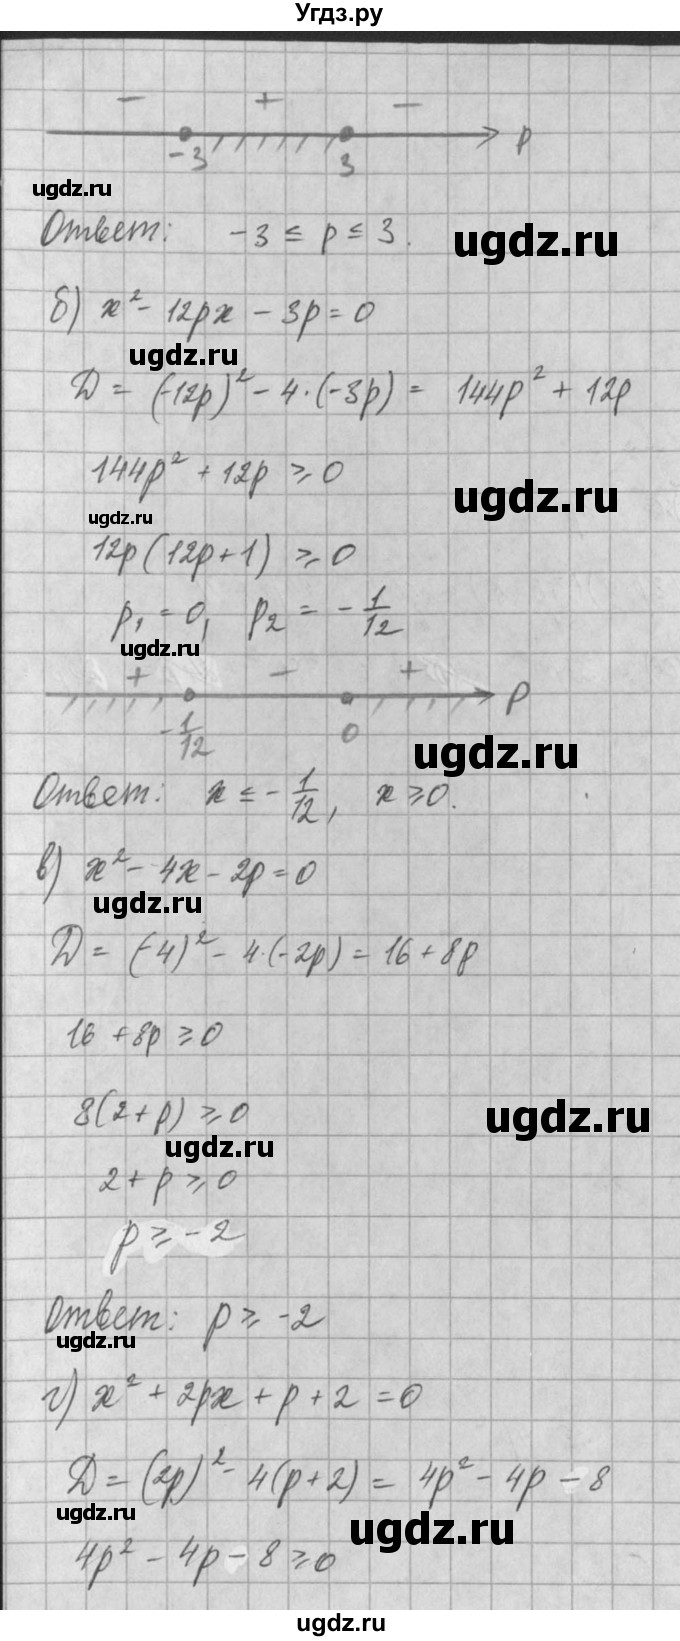 Угдз.ру
− + −
-3 3 p
ugdz.ru
Ответ: -3 ≤ p ≤ 3.
ugdz.ru
б) x² - 12px - 3p = 0
ugdz.ru
D = (-12p)² - 4·(-3p) = 144p² + 12p
144p² + 12p ≥ 0
ugdz.ru
ugdz.ru
12p(12p+1) ≥ 0
p₁ = 0, p₂ = -1/12
ugdz.ru
+ − +
-1/12 0 p
ugdz.ru
Ответ: x ≤ -1/12, x ≥ 0.
в) x² - 4x - 2p = 0
ugdz.ru
D = (-4)² - 4·(-2p) = 16 + 8p
16 + 8p ≥ 0
8(2+p) ≥ 0
ugdz.ru
ugdz.ru
2 + p ≥ 0
p ≥ -2
Ответ: p ≥ -2
ugdz.ru
г) x² + 2px + p + 2 = 0
D = (2p)² - 4(p+2) = 4p² - 4p - 8
ugdz.ru
ugdz.ru
4p² - 4p - 8 ≥ 0
ugdz.ru